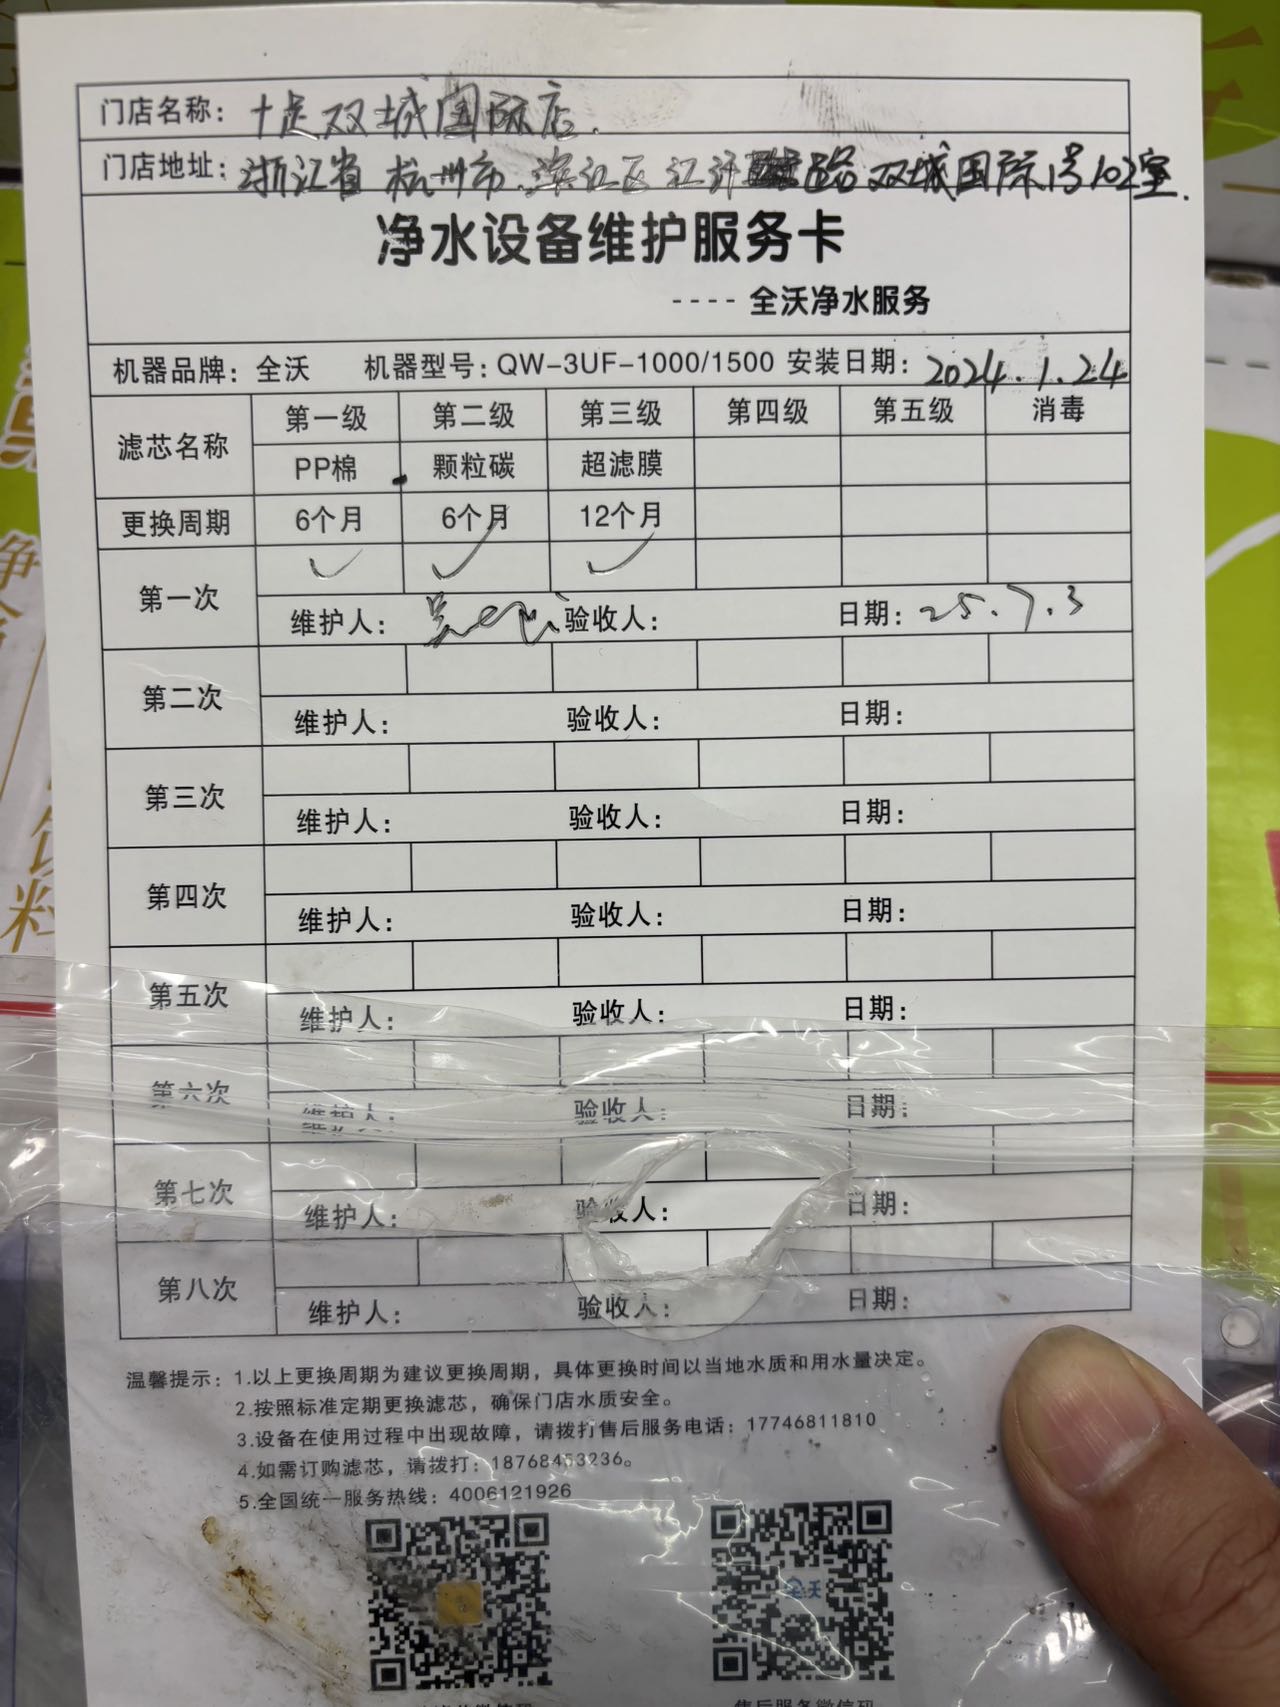 门店名称：十足双城国际店.
门店地址：浙江省杭州市.滨江区江汉路双城国际1号102室.
净水设备维护服务卡
----全沃净水服务
机器品牌：全沃 机器型号：QW-3UF-1000/1500 安装日期：2024.1.24
滤芯名称 第一级 第二级 第三级 第四级 第五级 消毒
PP棉 颗粒碳 超滤膜
更换周期 6个月 6个月 12个月
第一次 ✓ ✓ ✓
维护人： 验收人： 日期：25.7.3
第二次
维护人： 验收人： 日期：
第三次
维护人： 验收人： 日期：
第四次
维护人： 验收人： 日期：
第五次
维护人： 验收人： 日期：
第六次
维护人： 验收人： 日期：
第七次
维护人： 验收人： 日期：
第八次
维护人： 验收人： 日期：
温馨提示：1.以上更换周期为建议更换周期，具体更换时间以当地水质和用水量决定。
2.按照标准定期更换滤芯，确保门店水质安全。
3.设备在使用过程中出现故障，请拨打售后服务电话：17746811810
4.如需订购滤芯，请拨打：18768453236。
5.全国统一服务热线：4006121926
售后服务微信码